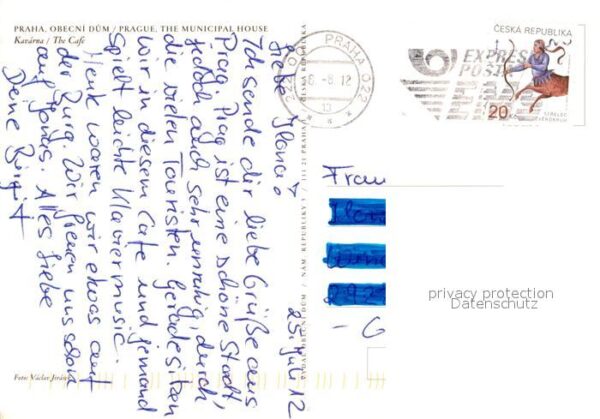 PRAHA, OBECNÍ DŮM / PRAGUE, THE MUNICIPAL HOUSE
Kavárna / The Café
25. Juli 12
Liebe Ilona
Ich sende dir liebe Grüße aus
Prag. Prag ist eine schöne Stadt,
jedoch auch sehr unruhig, durch
die vielen Touristen. Gerade sitzen
wir in diesem Cafe und jemand
spielt leichte Klaviermusic.
Heute waren wir etwas auf
der Burg. Wir freuen uns schon
auf Alles Liebe
Deine Birgit
Foto: Václav
OBECNÍ DŮM / NÁM. REPUBLIKY 5 / 111 21 PRAHA 1 / ČESKÁ REPUBLIKA
PRAHA 022
-8.12
EXPRES
POST
EMS
ČESKÁ REPUBLIKA
20 Kč
STŘELEC
Frau
privacy protection
Datenschutz